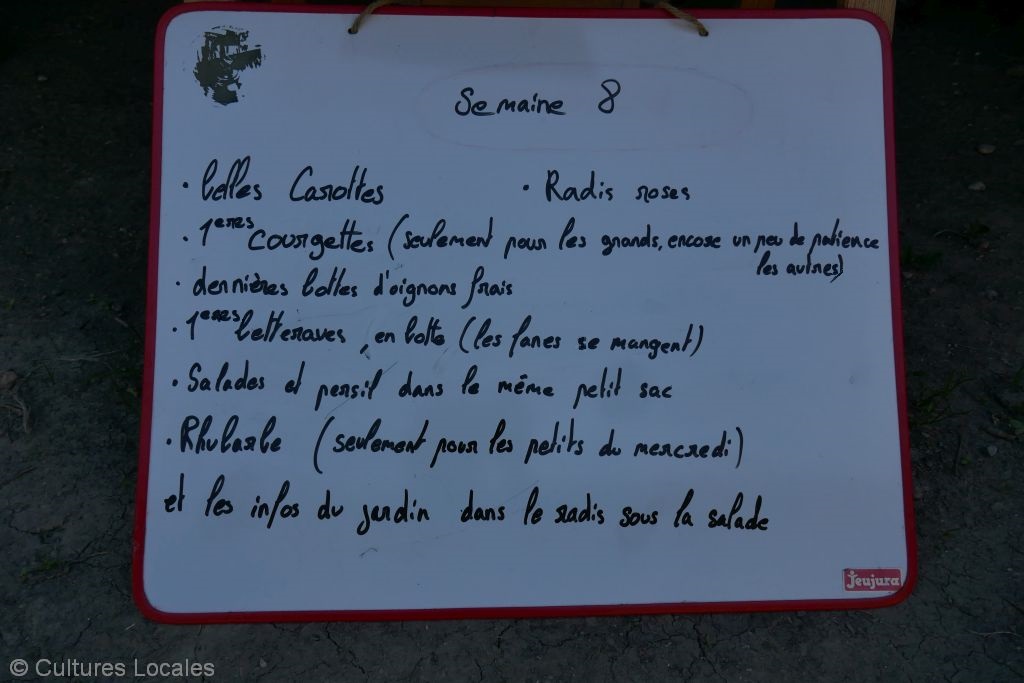 Semaine 8
· belles Carottes · Radis roses
· 1ères courgettes (seulement pour les grands, encore un peu de patience
les autres)
· dernières bottes d'oignons frais
· 1eres betteraves, en botte (les fanes se mangent)
· Salades et persil dans le même petit sac
· Rhubarbe (seulement pour les petits du mercredi)
et les infos du jardin dans le radis sous la salade
Jeujura
© Cultures Locales